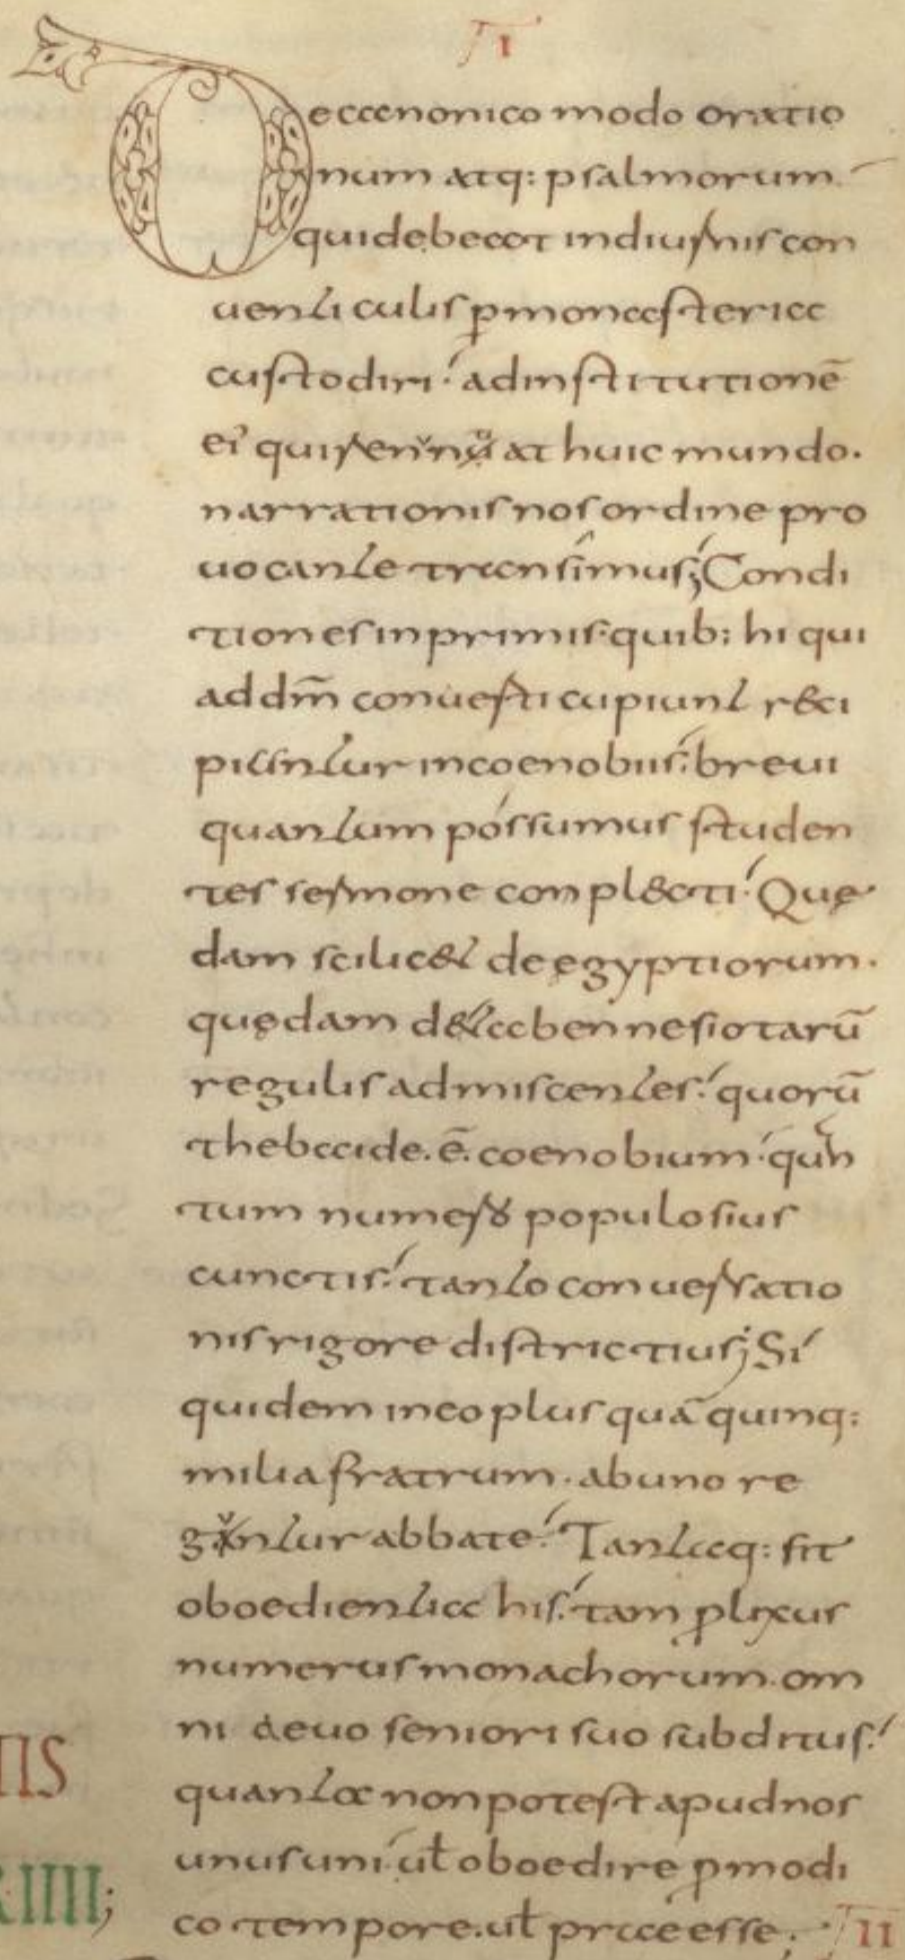 I
De canonico modo oratio
num atq: psalmorum.
qui debeat in diurnis con
uenticulis p̱ monasteria
custodiri. ad institutionē
ei' qui renun at huic mundo.
narrationis nos ordine pro
uocante transimus; Condi
tiones inprimis quib: hi qui
ad dm̄ conuerti cupiunt reci
piantur in coenobiis. breui
quantum possumus studen
tes sermone conplecti. Quę
dam scilicet de egyptiorum.
quędam de tabennesiotarū
regulis admiscentes. quorū
thebaide. ē. coenobium. quan
tum numero populosius
cunctis. tanto conuersatio
nis rigore districtius; Si
quidem in eo plus quā quinq:
milia fratrum. ab uno re
guntur abbate. Tantaq: sit
oboedientia his. tam p̱lixus
numerus monachorum. om
ni aeuo seniori suo subditus.
quanta non potest apud nos
unus uni. uł oboedire p̱ modi
co tempore. uł praeesse. II
TIS
IIII;